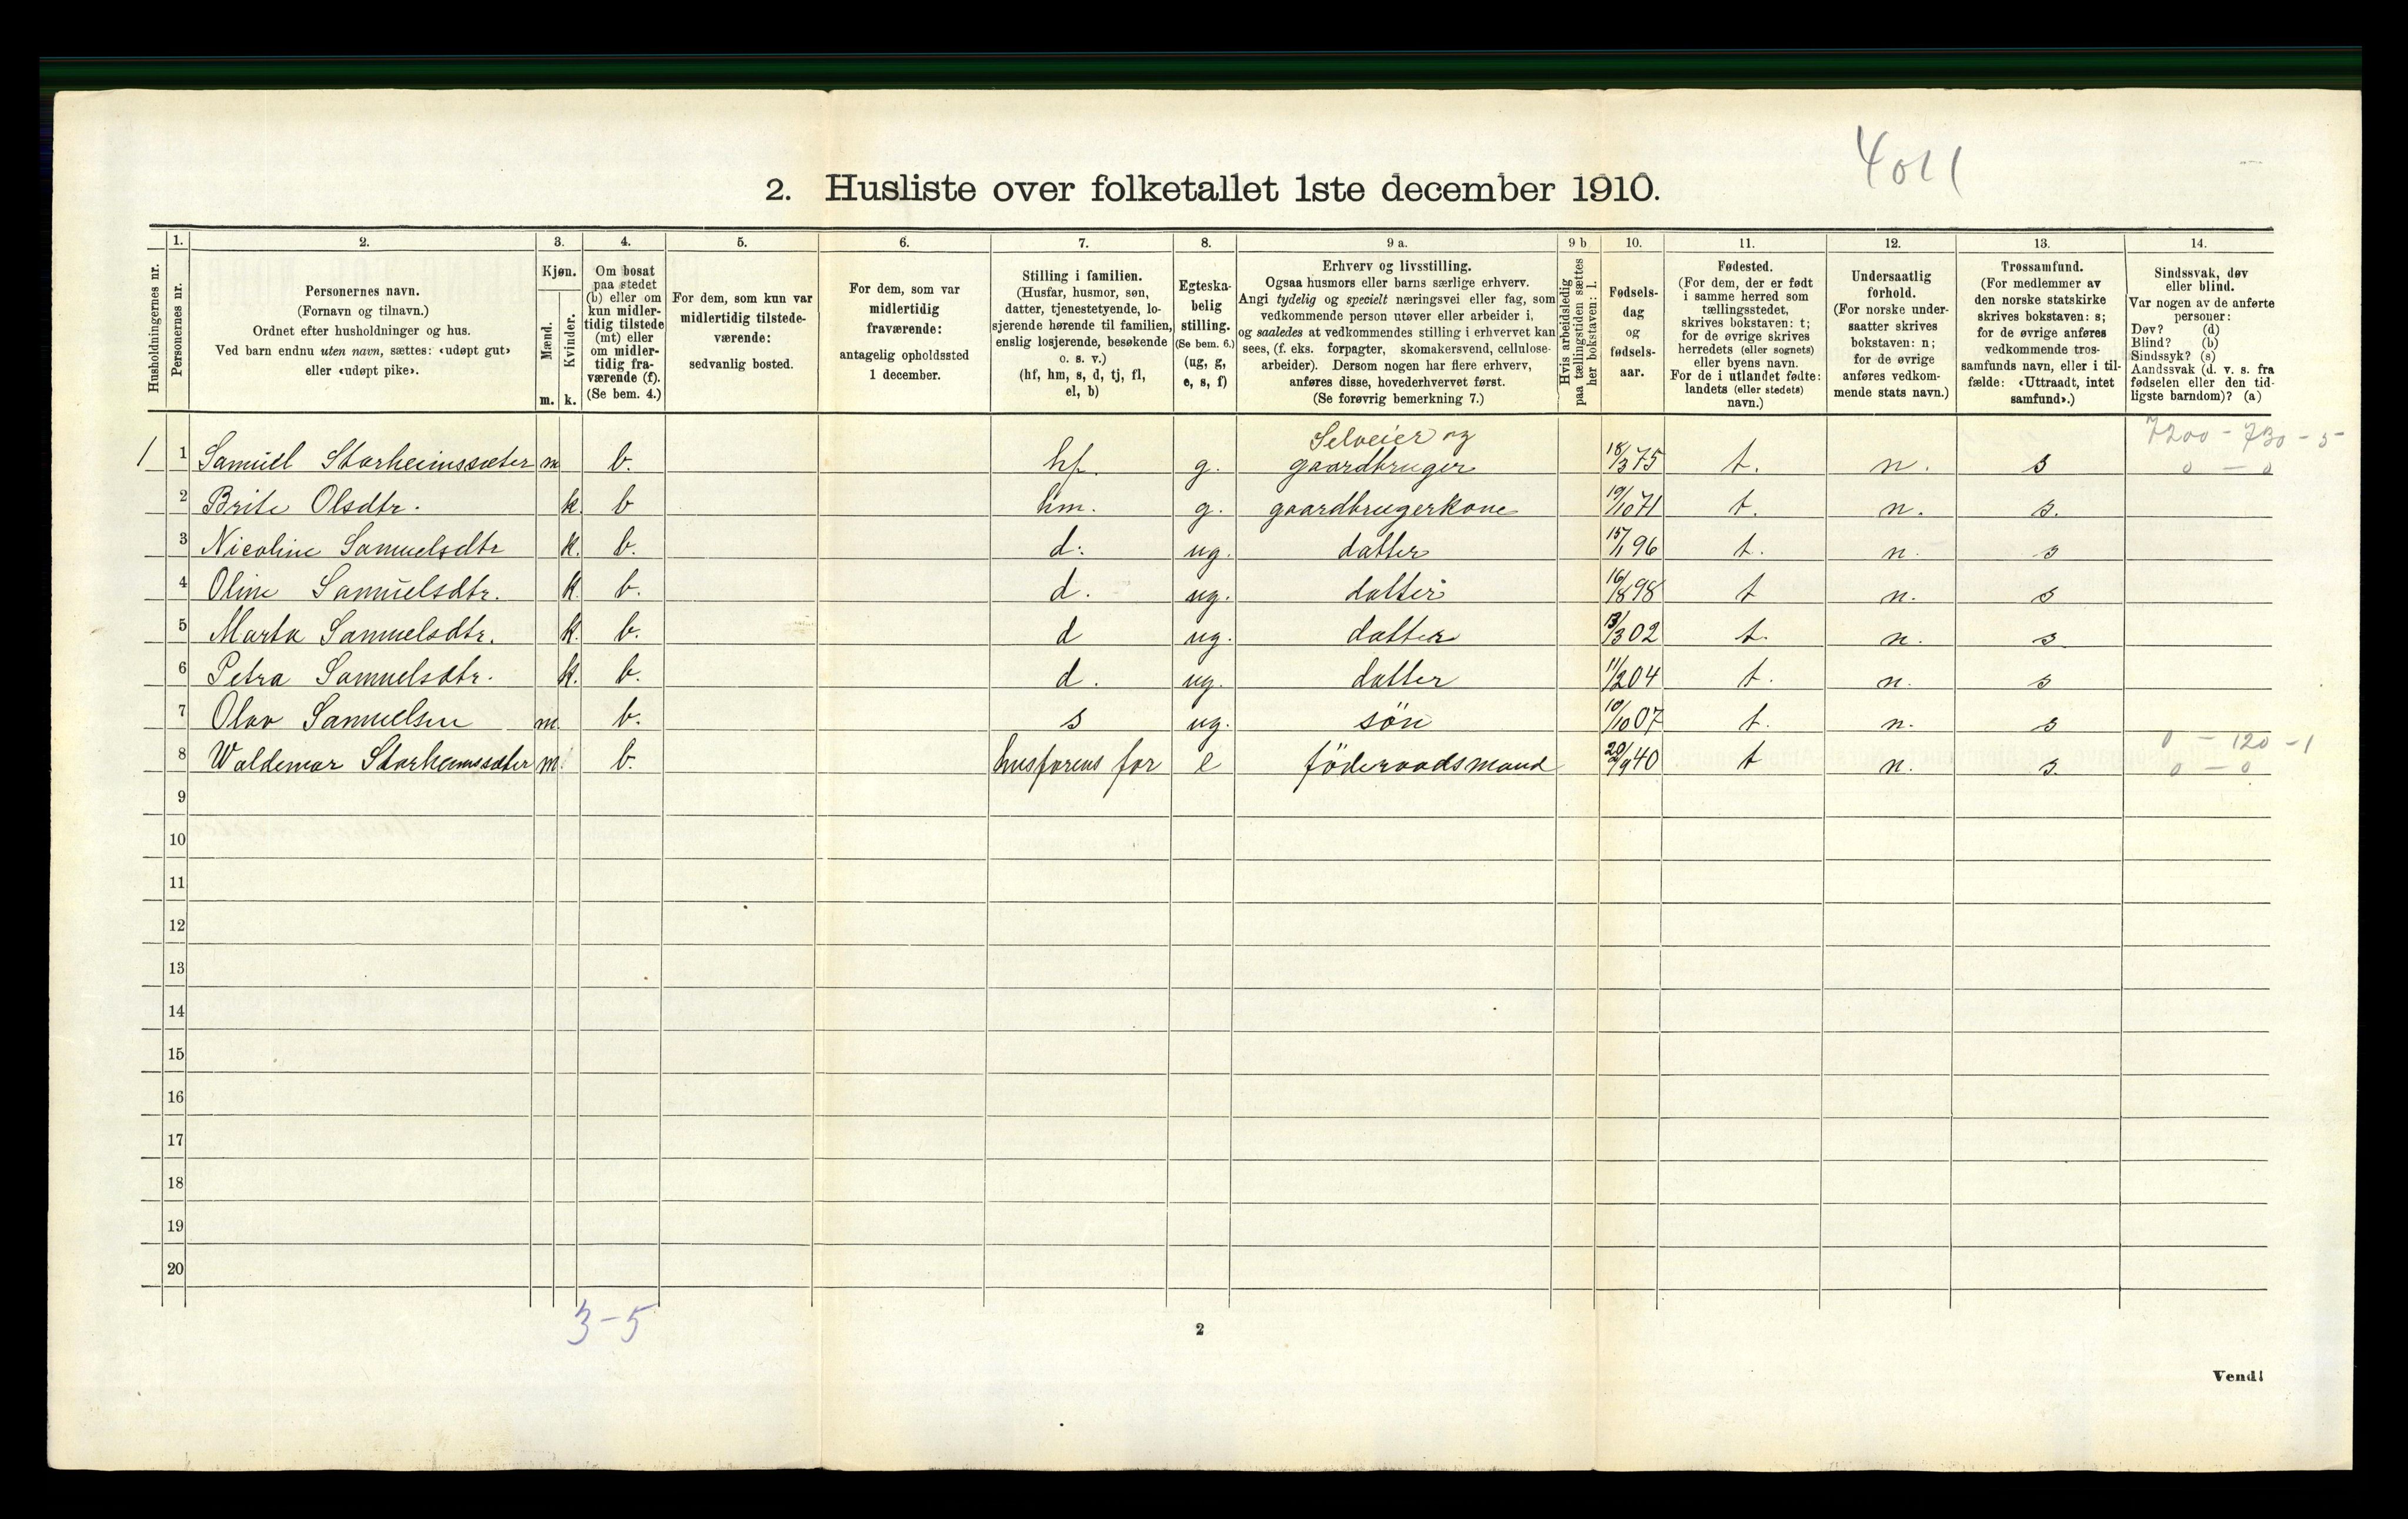 4011
2. Husliste over folketallet 1ste december 1910.
Husholdningernes nr.
1. Personernes nr.
2. Personernes navn.
(Fornavn og tilnavn.)
Ordnet efter husholdninger og hus.
Ved barn endnu uten navn, sættes: «udøpt gut»
eller «udøpt pike».
3. Kjøn.
Mænd. m.
Kvinder. k.
4. Om bosat
paa stedet
(b) eller om
kun midler-
tidig tilstede
(mt) eller
om midler-
tidig fra-
værende (f).
(Se bem. 4.)
5. For dem, som kun var
midlertidig tilstede-
værende:
sedvanlig bosted.
6. For dem, som var
midlertidig
fraværende:
antagelig opholdssted
1 december.
7. Stilling i familien.
(Husfar, husmor, søn,
datter, tjenestetyende, lo-
sjerende hørende til familien,
enslig losjerende, besøkende
o. s. v.)
(hf, hm, s, d, tj, fl,
el, b)
8. Egteska-
belig
stilling.
(Se bem. 6.)
(ug, g,
e, s, f)
9 a. Erhverv og livsstilling.
Ogsaa husmors eller barns særlige erhverv.
Angi tydelig og specielt næringsvei eller fag, som
vedkommende person utøver eller arbeider i,
og saaledes at vedkommendes stilling i erhvervet kan
sees, (f. eks. forpagter, skomakersvend, cellulose-
arbeider). Dersom nogen har flere erhverv,
anføres disse, hovederhvervet først.
(Se forøvrig bemerkning 7.)
9 b Hvis arbeidsledig
paa tællingstiden sættes
her bokstaven: l.
10. Fødsels-
dag
og
fødsels-
aar.
11. Fødested.
(For dem, der er født
i samme herred som
tællingsstedet,
skrives bokstaven: t;
for de øvrige skrives
herredets (eller sognets)
eller byens navn.
For de i utlandet fødte:
landets (eller stedets)
navn.)
12. Undersaatlig
forhold.
(For norske under-
saatter skrives
bokstaven: n;
for de øvrige
anføres vedkom-
mende stats navn.)
13. Trossamfund.
(For medlemmer av
den norske statskirke
skrives bokstaven: s;
for de øvrige anføres
vedkommende tros-
samfunds navn, eller i til-
fælde: «Uttraadt, intet
samfund».)
14. Sindssvak, døv
eller blind.
Var nogen av de anførte
personer:
Døv? (d)
Blind? (b)
Sindssyk? (s)
Aandssvak (d. v. s. fra
fødselen eller den tid-
ligste barndom)? (a)
Selveier og 7200 - 730 - 5
1 1 Samuel Storheimssæter m b. hf. g. gaardbruger 18/3 75 t. n. s 0 - 0
2 Brite Olsdtr. k. b hm. g. gaardbrugerkone 19/10 71 t. n. s.
3 Nicoline Samuelsdtr k. b. d. ug. datter 15/1 96 t. n. s
4 Oline Samuelsdtr. k. b. d. ug. datter 16/8 98 t n. s
5 Marta Samuelsdtr. k. b. d ug. datter 13/3 02 t. n. s
6 Petra Samuelsdtr. k. b. d. ug. datter 11/2 04 t. n. s
7 Olav Samuelsen m. b. s ug. søn 10/10 07 t. n. s
0 - 120 - 1
8 Waldemar Storheimssæter m. b. husfarens far e föderaadsmand 20/9 40 t n. s. 0 - 0
9
10
11
12
13
14
15
16
17
18
19
20
3-5
2
Vend!